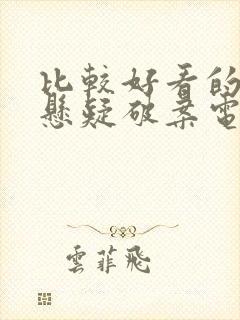 比較好看的
懸疑破案電
雲菲飛